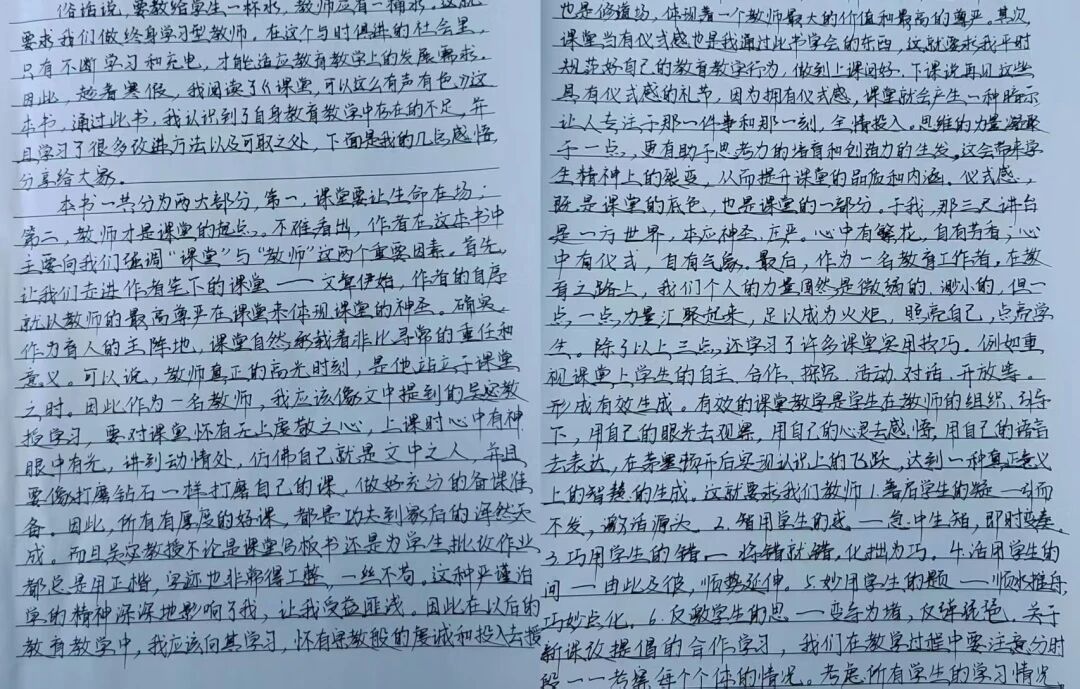 俗话说，要教给学生一杯水，教师应有一桶水。这就
要求我们做终身学习型教师。在这个与时俱进的社会里，
只有不断学习和充电，才能适应教育教学上的发展需求。
因此，趁着寒假，我阅读了《课堂，可以这么有声有色》这
本书，通过此书，我认识到了自身教育教学中存在的不足，并
且学习了很多改进方法以及可取之处，下面是我的几点感悟
分享给大家。
本书一共分为两大部分，第一，课堂要让生命在场；
第二，教师才是课堂的拐点。不难看出，作者在这本书中
主要向我们强调“课堂”与“教师”这两个重要因素。首先，
让我们走进作者笔下的课堂——文章伊始，作者的自序
就以教师的最高尊严在课堂来体现课堂的神圣。确实，
作为育人的主阵地，课堂自然承载着非比寻常的重任和
意义。可以说，教师真正的高光时刻，是他站立于课堂
之时。因此作为一名教师，我应该像文中提到的吴宓教
授学习，要对课堂怀有无上虔敬之心，上课时心中有神
眼中有光，讲到动情处，仿佛自己就是文中之人，并且
要像打磨钻石一样打磨自己的课，做好充分的备课准
备。因此，所有有厚度的好课，都是功夫到家后的浑然天
成。而且吴宓教授不论是课堂写板书还是为学生批改作业
都总是用正楷，字迹也非常得工整，一丝不苟。这种严谨治
学的精神深深地影响了我，让我受益匪浅。因此在以后的
教育教学中，我应该向其学习，怀有宗教般的虔诚和投入去授
也是修道场，体现着一个教师最大的价值和最高的尊严。其次
课堂当有仪式感也是我通过此书学会的东西，这就要求我平时
规范好自己的教育教学行为，做到上课问好，下课说再见这些
具有仪式感的礼节，因为拥有仪式感，课堂就会产生一种暗示
让人专注于那一件事和那一刻，全情投入。思维的力量凝聚
于一点，更有助于思考力的培育和创造力的生发。这会带来学
生精神上的裂变，从而提升课堂的品质和内涵。仪式感，
既是课堂的底色，也是课堂的一部分。于我，那三尺讲台
是一方世界，本应神圣、庄严。心中有繁花，自有芳香；心
中有仪式，自有气象。最后，作为一名教育工作者，在教
育之路上，我们个人的力量固然是微弱的、渺小的，但一
点一点力量汇聚起来，足以成为火炬，照亮自己，点亮学
生。除了以上三点，还学习了许多课堂实用技巧。例如重
视课堂上学生的自主、合作、探究、活动、对话、开放等。
形成有效生成。有效的课堂教学是学生在教师的组织、引导
下，用自己的眼光去观察，用自己的心灵去感悟，用自己的语言
去表达，在茅塞顿开后实现认识上的飞跃，达到一种真正意义
上的智慧的生成。这就要求我们教师1.善启学生的疑—引而
不发，激活源头 2.智用学生的惑—急中生智，即时变奏
3.巧用学生的错—将错就错，化拙为巧。4.活用学生的
问—由此及彼，顺势延伸。5.妙用学生的题——顺水推舟，
巧妙点化。6.反激学生的思—变导为堵，反弹琵琶。关于
新课改提倡的合作学习，我们在教学过程中要注意分时
段——考察每个个体的情况。考虑所有学生的学习情况。